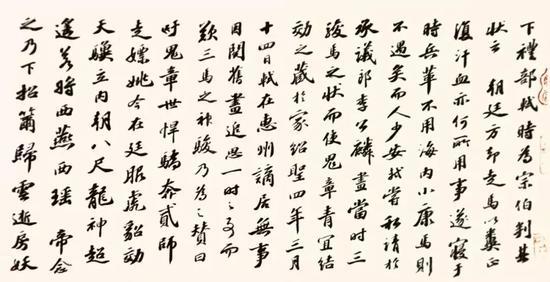 下禮部軾時為宗伯判其
狀云 朝廷方却走馬以糞正
復汗血亦何所用事遂寢于
時兵革不用海內小康馬則
不遇矣而人少安軾嘗私請於
承議郎李公麟畫當時三
駿馬之狀而使鬼章青宜結
効之藏於家紹聖四年三月
十四日軾在惠州謫居無事
因閱舊畫追思一時之事而
歎三馬之神駿乃為之贊曰
吁鬼章世悍驕奔貳師
走嫖姚今在廷服虎貂効
天驥立內朝八尺龍神超
遙若將西燕西瑤 帝念
之乃下招簫歸雲逝房妖